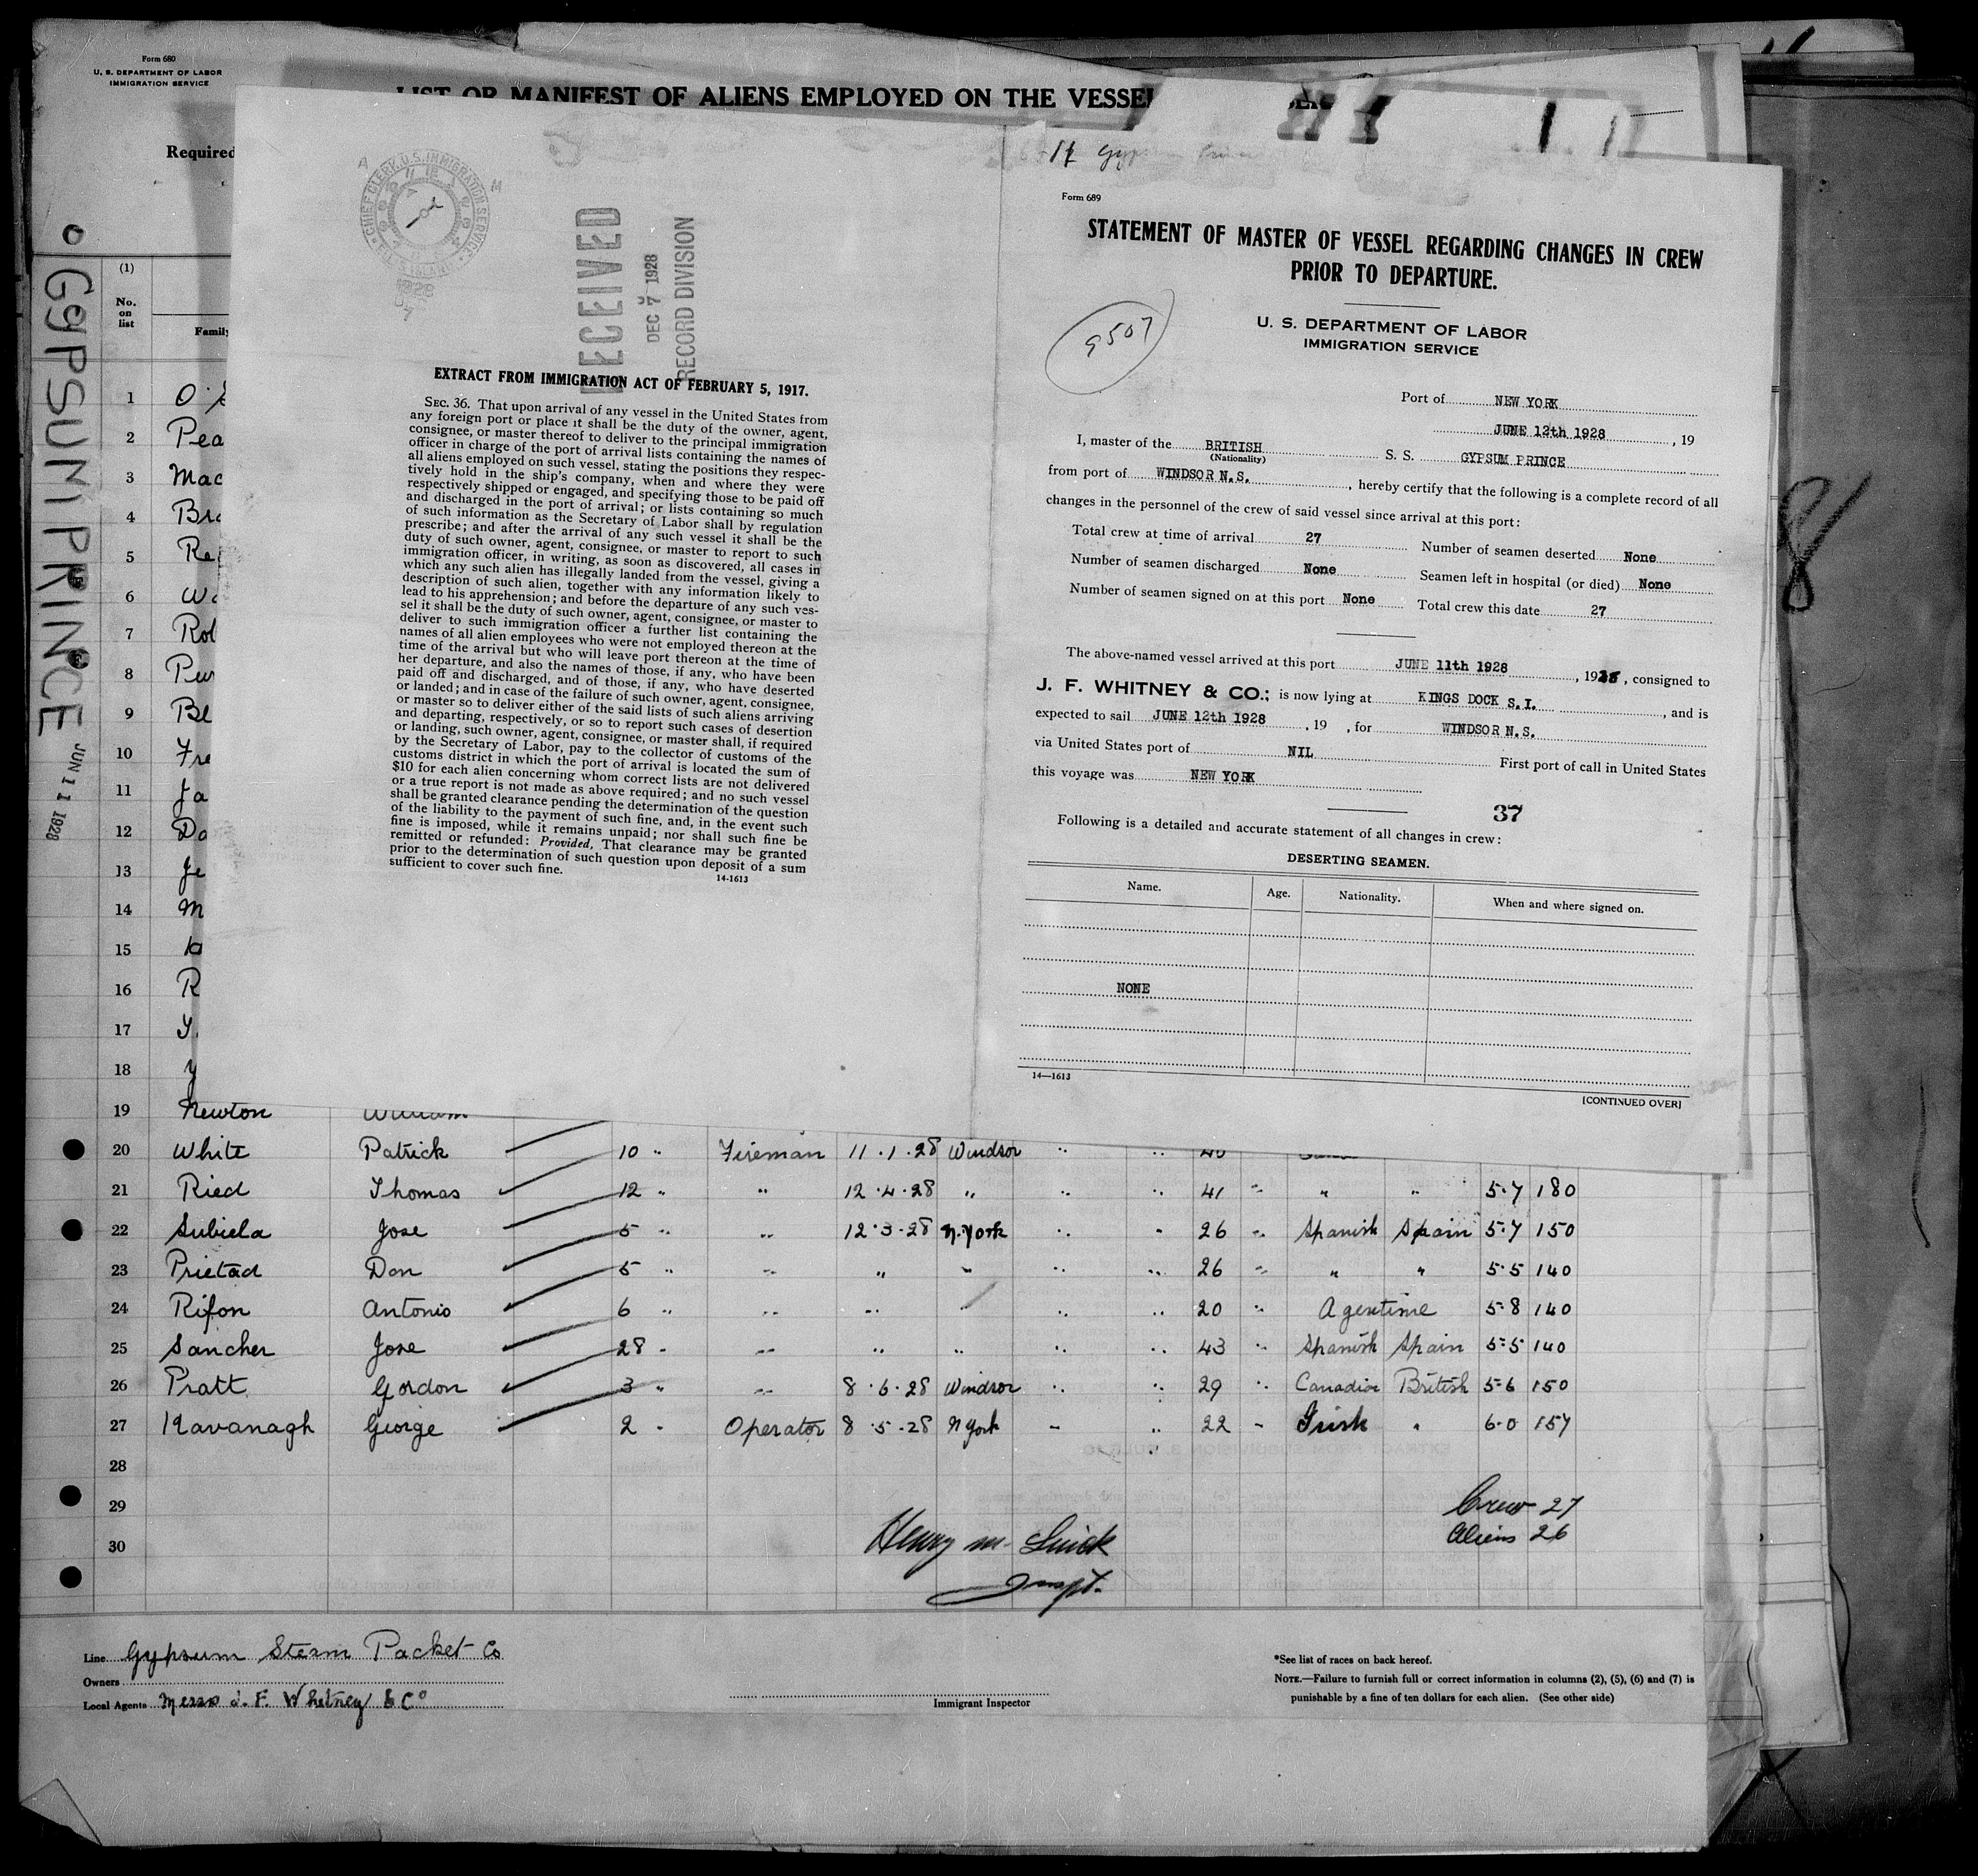 Form 680
U. S. DEPARTMENT OF LABOR
IMMIGRATION SERVICE
LIST OR MANIFEST OF ALIENS EMPLOYED ON THE VESSEL
Required
GYPSUM PRINCE
JUN 11 1928
(1)
No.
on
list
Family
1
2 Pea
3 Mac
4 Bro
5 Re
6 Wo
7 Rol
8 Pur
9 Bl
10 Fre
11 Ja
12 Do
13 Je
14 M
15
16 R
17 Y.
18 Y
19 Newton William
20 White Patrick 10 " Fireman 11.1.28 Windsor " " 40
21 Ried Thomas 12 " " 12.4.28 " " " 41 " " " 5.7 180
22 Subiela Jose 5 " " 12.3.28 N.York " " 26 " Spanish Spain 5.7 150
23 Prietad Don 5 " " " " " " 26 " " " 5.5 140
24 Rifon Antonio 6 " " " " " " 20 " Agentine 5.8 140
25 Sancher Jose 28 " " " " " " 43 " Spanish Spain 5.5 140
26 Pratt Gordon 3 " " 8.6.28 Windsor " " 29 " Canadian British 5.6 150
27 Kavanagh George 2 " Operator 8.5.28 N York " " 22 " Irish " 6.0 157
28
29
30
Crew 27
Aliens 26
Henry M.
Inspt.
Line Gypsum Steam Packet Co
Owners
Local Agents Messrs J. F. Whitney & Co
Immigrant Inspector
*See list of races on back hereof.
NOTE.—Failure to furnish full or correct information in columns (2), (5), (6) and (7) is
punishable by a fine of ten dollars for each alien. (See other side)
CHIEF CLERK, U.S. IMMIGRATION SERVICE
ISLAND
1928
7
RECEIVED
DEC 7 1928
RECORD DIVISION
EXTRACT FROM IMMIGRATION ACT OF FEBRUARY 5, 1917.
SEC. 36. That upon arrival of any vessel in the United States from
any foreign port or place it shall be the duty of the owner, agent,
consignee, or master thereof to deliver to the principal immigration
officer in charge of the port of arrival lists containing the names of
all aliens employed on such vessel, stating the positions they respec-
tively hold in the ship's company, when and where they were
respectively shipped or engaged, and specifying those to be paid off
and discharged in the port of arrival; or lists containing so much
of such information as the Secretary of Labor shall by regulation
prescribe; and after the arrival of any such vessel it shall be the
duty of such owner, agent, consignee, or master to report to such
immigration officer, in writing, as soon as discovered, all cases in
which any such alien has illegally landed from the vessel, giving a
description of such alien, together with any information likely to
lead to his apprehension; and before the departure of any such ves-
sel it shall be the duty of such owner, agent, consignee, or master to
deliver to such immigration officer a further list containing the
names of all alien employees who were not employed thereon at the
time of the arrival but who will leave port thereon at the time of
her departure, and also the names of those, if any, who have been
paid off and discharged, and of those, if any, who have deserted
or landed; and in case of the failure of such owner, agent, consignee,
or master so to deliver either of the said lists of such aliens arriving
and departing, respectively, or so to report such cases of desertion
or landing, such owner, agent, consignee, or master shall, if required
by the Secretary of Labor, pay to the collector of customs of the
customs district in which the port of arrival is located the sum of
$10 for each alien concerning whom correct lists are not delivered
or a true report is not made as above required; and no such vessel
shall be granted clearance pending the determination of the question
of the liability to the payment of such fine, and, in the event such
fine is imposed, while it remains unpaid; nor shall such fine be
remitted or refunded: Provided, That clearance may be granted
prior to the determination of such question upon deposit of a sum
sufficient to cover such fine.
14-1613
Form 689
STATEMENT OF MASTER OF VESSEL REGARDING CHANGES IN CREW
PRIOR TO DEPARTURE.
9507
U. S. DEPARTMENT OF LABOR
IMMIGRATION SERVICE
Port of NEW YORK
JUNE 12th 1928, 19
I, master of the BRITISH S. S. GYPSUM PRINCE
(Nationality)
from port of WINDSOR N.S., hereby certify that the following is a complete record of all
changes in the personnel of the crew of said vessel since arrival at this port:
Total crew at time of arrival 27 Number of seamen deserted None
Number of seamen discharged None Seamen left in hospital (or died) None
Number of seamen signed on at this port None Total crew this date 27
The above-named vessel arrived at this port JUNE 11th 1928, 1928, consigned to
J. F. WHITNEY & CO.; is now lying at KINGS DOCK S.I., and is
expected to sail JUNE 12th 1928, 19 , for WINDSOR N.S.
via United States port of NIL First port of call in United States
this voyage was NEW YORK
37
Following is a detailed and accurate statement of all changes in crew:
DESERTING SEAMEN.
Name. Age. Nationality. When and where signed on.
NONE
14—1613
[CONTINUED OVER]
8